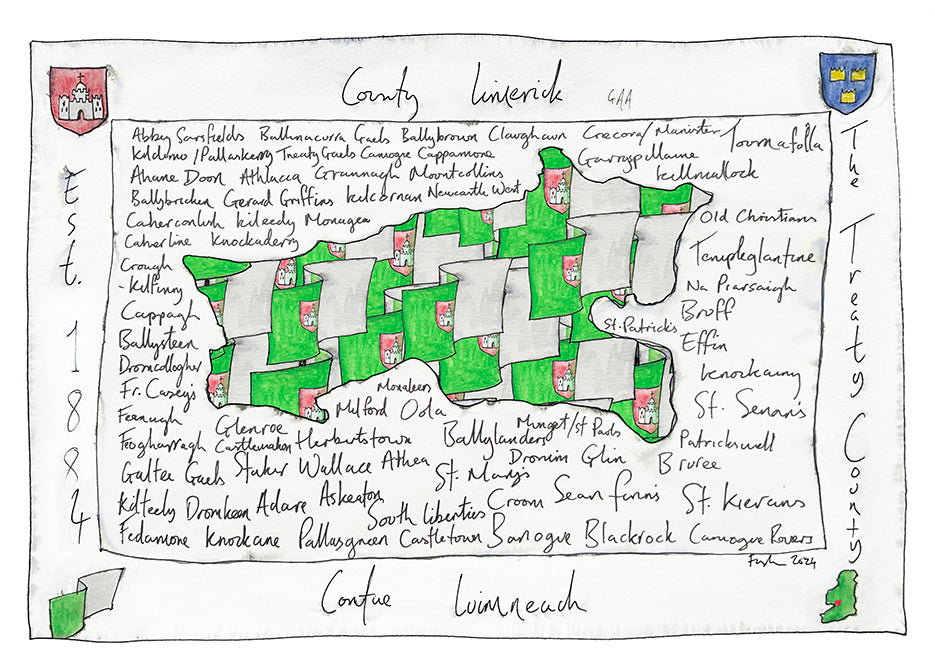 County Limerick GAA
Abbey Sarsfields Ballinacurra Gaels Ballybrown Claughaun Crecora/Manister Tournafulla
Kildimo/Pallaskenry Treaty Gaels Camogie Cappamore Garryspillane
Ahane Doon Athlacca Grannagh Mountcollins Killmallock
Ballybricken Gerard Griffins Kilcornan Newcastle West
Caherconlish Kileedy Monagea Old Christians
Caherline Knockaderry Templeglantine
Crough
-Kilfinny Na Piarsaigh
Cappagh Bruff
St. Patricks
Ballysteen Effin
Dromcollogher Knockainy
Fr. Casey's Monaleen
Milford Oola St. Senan's
Feenagh Glenroe Mungret/St Pauls
Feoghanagh Castlemahon Herbertstown Ballylanders Patrickswell
Galtee Gaels Staker Wallace Athea Dromin Glin Bruree
St. Mary's
Kilteely Dromkeen Adare Askeaton Croom Sean Finns St. Kierans
South Liberties
Fedamore Knockane Pallasgreen Castletown Banogue Blackrock Camogue Rovers
2024
Contae Luimneach
Est. 1884
The Treaty County